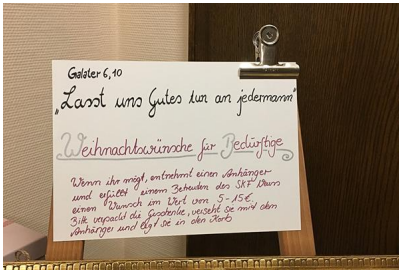 Galater 6,10
„Lasst uns Gutes tun an jedermann"
Weihnachtswünsche für Bedürftige
Wenn ihr mögt, entnehmt einen Anhänger
und erfüllt einem Betreuten des SKF Wunn
einen Wunsch im Wert von 5-15€.
Bitte verpackt die Geschenke, verseht sie mit dem
Anhänger und legt sie in den Korb